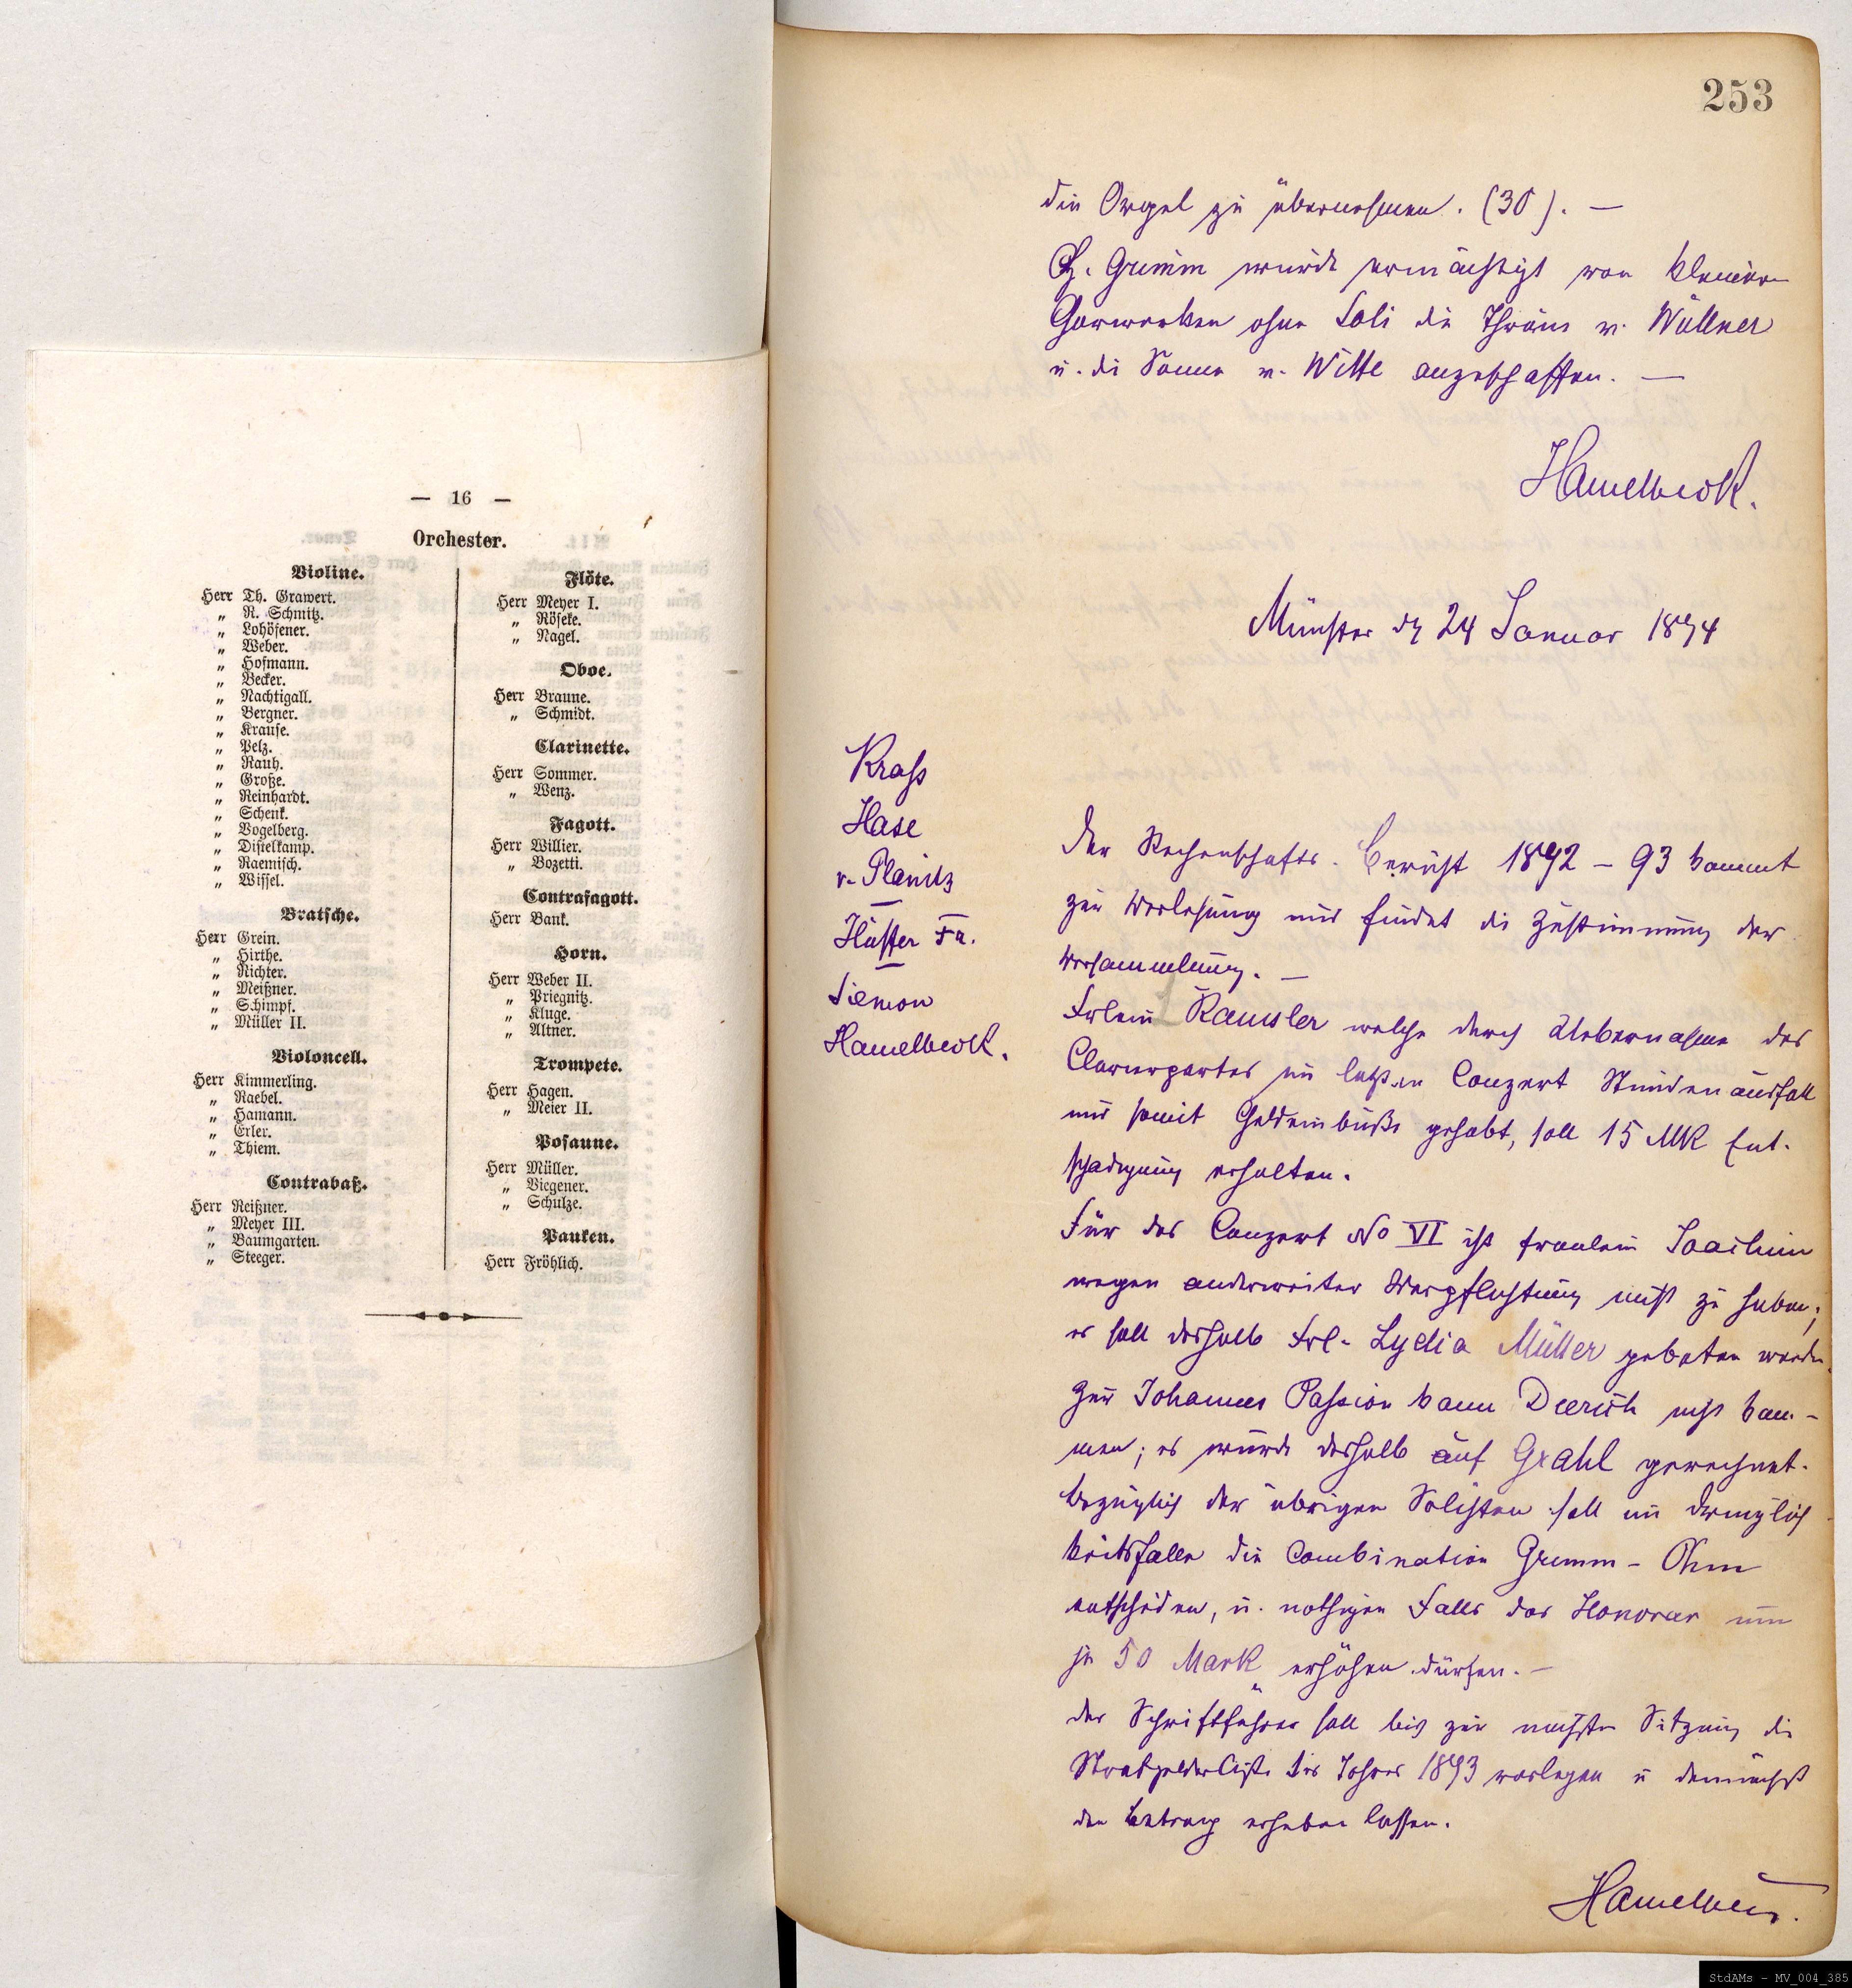 — 16 —
Orchester.
Violine.
Herr Th. Grawert.
„ R. Schmitz.
„ Lohöfener.
„ Weber.
„ Hofmann.
„ Becker.
„ Nachtigall.
„ Bergner.
„ Krause.
„ Pelz.
„ Rauh.
„ Große.
„ Reinhardt.
„ Schenk.
„ Vogelberg.
„ Distelkamp.
„ Raemisch.
„ Wissel.
Bratsche.
Herr Grein.
„ Hirthe.
„ Richter.
„ Meißner.
„ Schimpf.
„ Müller II.
Violoncell.
Herr Kimmerling.
„ Raebel.
„ Hamann.
„ Erler.
„ Thiem.
Contrabaß.
Herr Reißner.
„ Meyer III.
„ Baumgarten.
„ Steeger.
Flöte.
Herr Meyer I.
„ Röseke.
„ Nagel.
Oboe.
Herr Braune.
„ Schmidt.
Clarinette.
Herr Sommer.
„ Wenz.
Fagott.
Herr Willier.
„ Bozetti.
Contrafagott.
Herr Bank.
Horn.
Herr Weber II.
„ Priegnitz.
„ Kluge.
„ Altner.
Trompete.
Herr Hagen.
„ Meier II.
Posaune.
Herr Müller.
„ Viegener.
„ Schulze.
Pauken.
Herr Fröhlich.
253
die Orgel zu übernehmen. (30). —
H. Grimm wurde ermächtigt von kleineren
Chorwerken ohne Soli die Thräne v. Wüllner
u. die Sonne v. Witte anzuschaffen. —
Hamelbeck.
Münster d 24 Januar 1894
Krass
Hase
v. Planitz
Hüffer Fr.
Siemon
Hamelbeck.
Der Rechenschafts-Bericht 1892–93 kommt
zur Verlesung und findet die Zustimmung der
Versammlung. —
Frlein Ramsler welche durch Uebernahme des
Clavierpartes im letzten Conzert Stundenausfall
und somit Geldeinbuße gehabt, soll 15 MK Ent-
schädigung erhalten.
Für das Conzert No VI ist Fraulein Joachim
wegen anderweiter Verpflichtung nicht zu haben;
es soll deshalb Frl. Lydia Müller gebeten werden.
Zur Johannes Passion kann Dierich nicht kom-
men; es wurde deshalb auf Grahl gerechnet.
Bezüglich der übrigen Solisten soll im Dringlich
keitsfalle die Combination Grimm – Ohm
entscheiden, u. nöthigen Falls das Honorar um
je 50 Mark erhöhen dürfen. —
der Schriftführer soll bis zur nächsten Sitzung die
Strafgelderliste des Jahres 1893 vorlegen u demnächst
den Betrag erheben lassen.
Hamelbeck.
StdAMs - MV_004_385